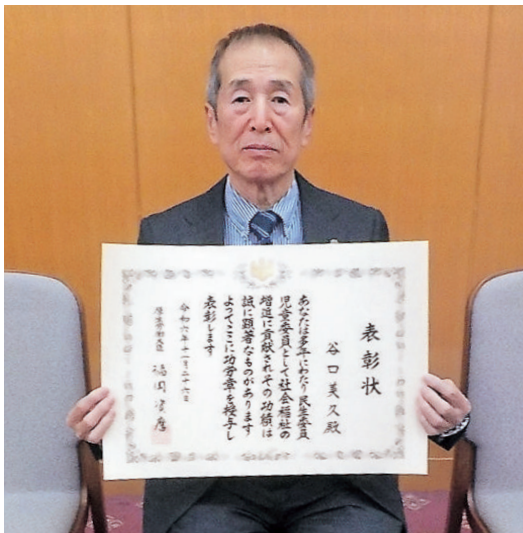 表彰状
谷口美久殿
あなたは多年にわたり民生委員
児童委員として社会福祉の
増進に貢献されその功績は
誠に顕著なものがあります
よってここに功労章を授与し
表彰します
令和六年十一月二十六日
厚生労働大臣 福岡資麿